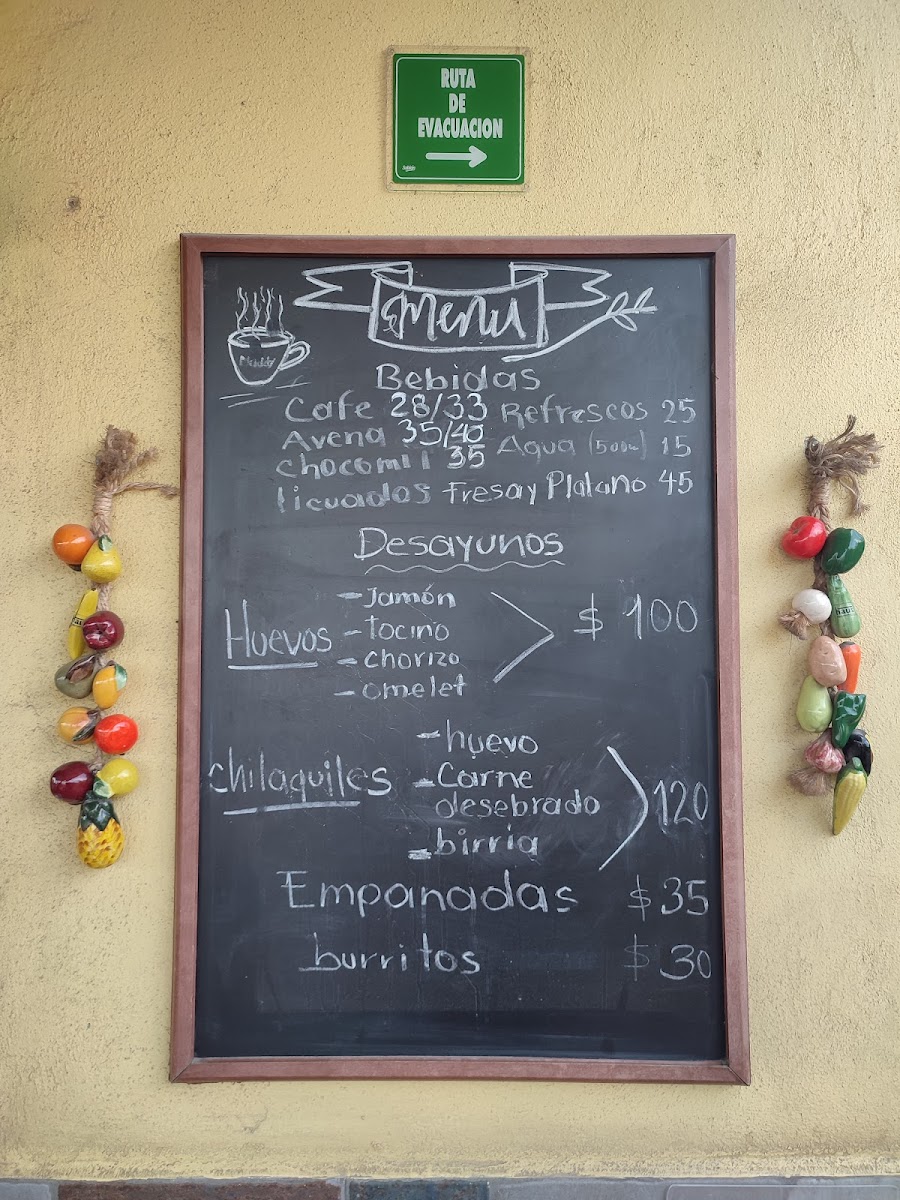 RUTA
DE
EVACUACION
Menu
Bebidas
Cafe 28/33 Refrescos 25
Avena 35/40 Agua (500ml) 15
chocomil 35
licuados Fresa y Platano 45
Desayunos
Huevos
- Jamón
- tocino
- chorizo
- omelet
$ 100
chilaquiles
- huevo
- Carne
desebrado
- birria
120
Empanadas $35
burritos $30